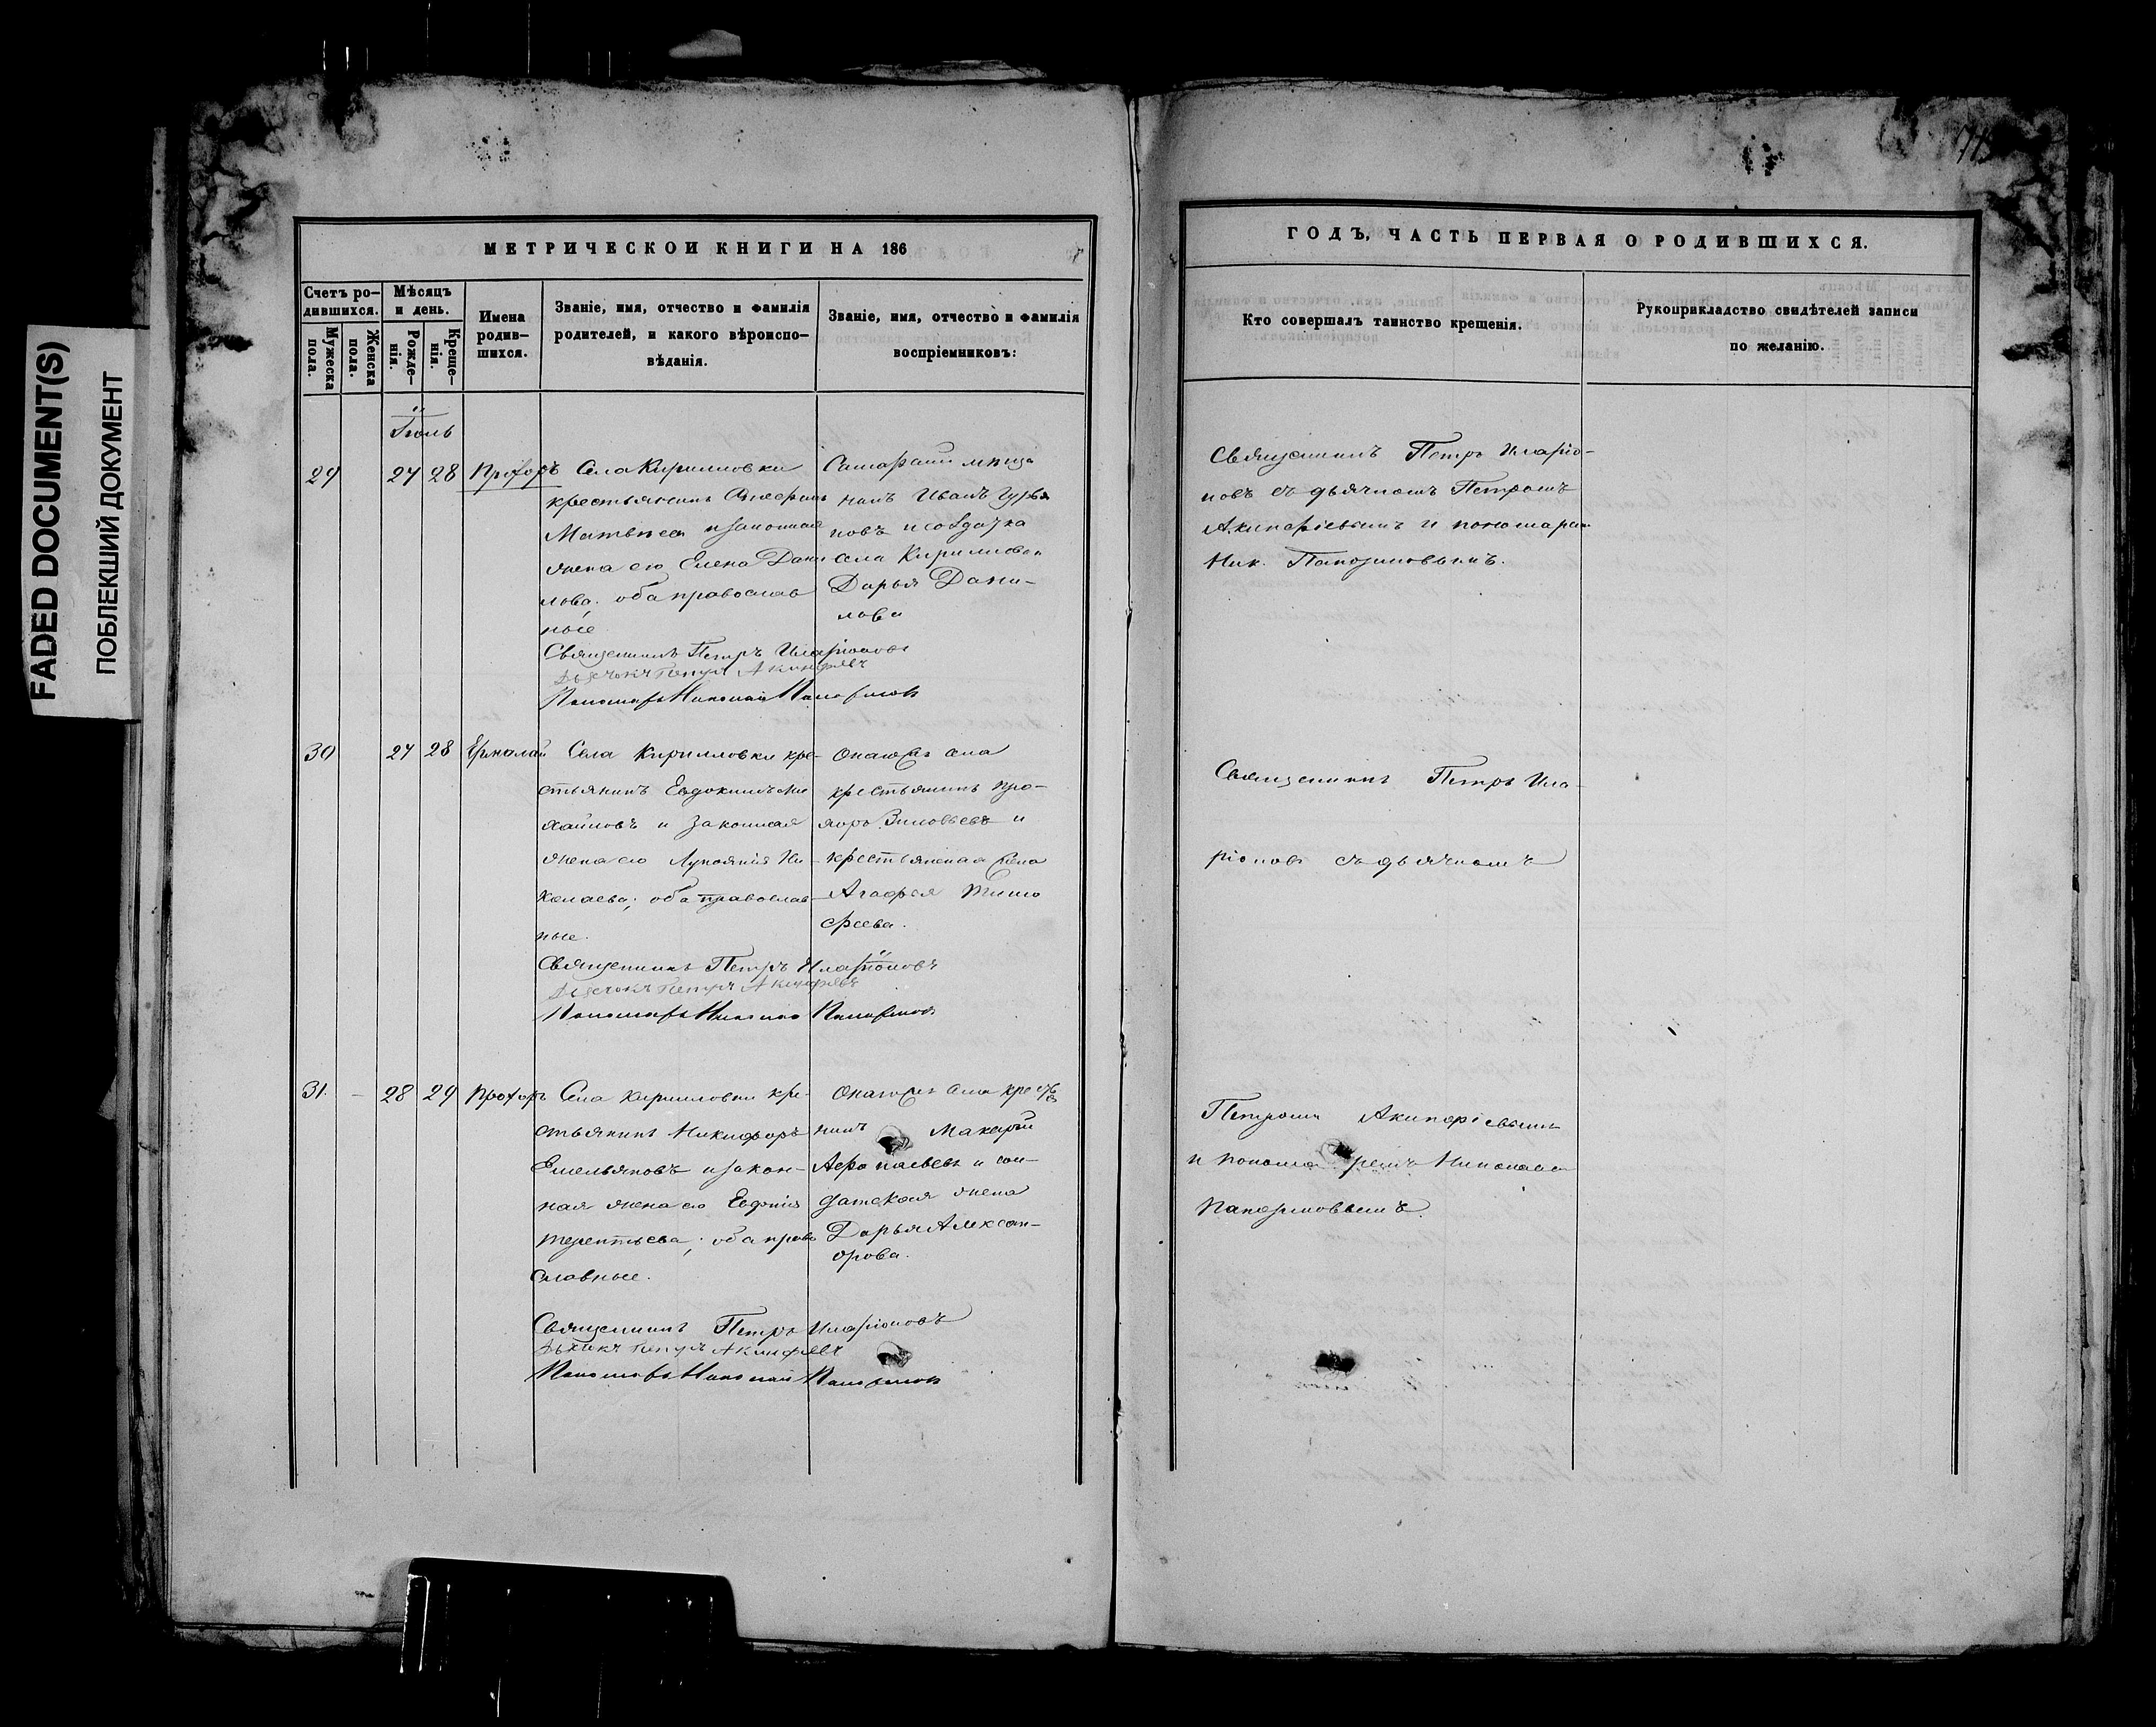 FADED DOCUMENT(S)
ПОБЛЕКШИЙ ДОКУМЕНТ
МЕТРИЧЕСКОЙ КНИГИ НА 186
Счетъ ро-
дившихся.
Мужеска
пола.
Женска
пола.
Мѣсяцъ
и день.
Рожде-
нія.
Креще-
нія.
Имена
родив-
шихся.
Званіе, имя, отчество и фамилія
родителей, и какого вѣроиспо-
вѣданія.
Званіе, имя, отчество и фамилія
воспріемниковъ:
Іюль
29 27 28 Прохоръ
Села Кирилловки
крестьянинъ
Матвеев и законная
жена его Елена Дани
лова; оба православ
ные
Священникъ Петръ Иларіоновъ
Дьячокъ Петръ Акинфіевъ
Пономарь Николай
нинъ Иванъ Гурья
новъ и солдатка
села Кирилловки
Дарья Дани-
лова
30 27 28 Ермолай
Села Кирилловки кре-
стьянинъ Евдокимъ Ми
хайловъ и законная
жена его Лукерия Ни-
колаева; оба православ-
ные.
Священникъ Петръ Иларіоновъ
Дьячокъ Петръ Акинфіевъ
Пономарь Николай
Онагожъ села
крестьянинъ Про-
хоръ Зиновьевъ и
крестьянская жена
Агафья Тимо
феева.
31. - 28 29 Прохоръ
Села Кирилловки кре-
стьянинъ Никифоръ
Емельяновъ и закон-
ная жена его Евфимія
Терентьева; оба право
славные.
Священникъ Петръ Иларіоновъ
Дьячокъ Петръ Акинфіевъ
Пономарь Николай
Онагожъ села крестья
нинъ Макарій
Афонасьевъ и сол-
датская жена
Дарья Алексан-
дрова.
ГОДЪ, ЧАСТЬ ПЕРВАЯ О РОДИВШИХСЯ.
Кто совершалъ таинство крещенія.
Рукоприкладство свидѣтелей записи
по желанію.
Священникъ Петръ Иларіо-
новъ съ дьячкомъ Петромъ
Акинфіевымъ и пономаремъ
Ник.
Священникъ Петръ Ила-
ріоновъ съ дьячкомъ
Петромъ Акинфіевымъ
и пономаремъ Николаем